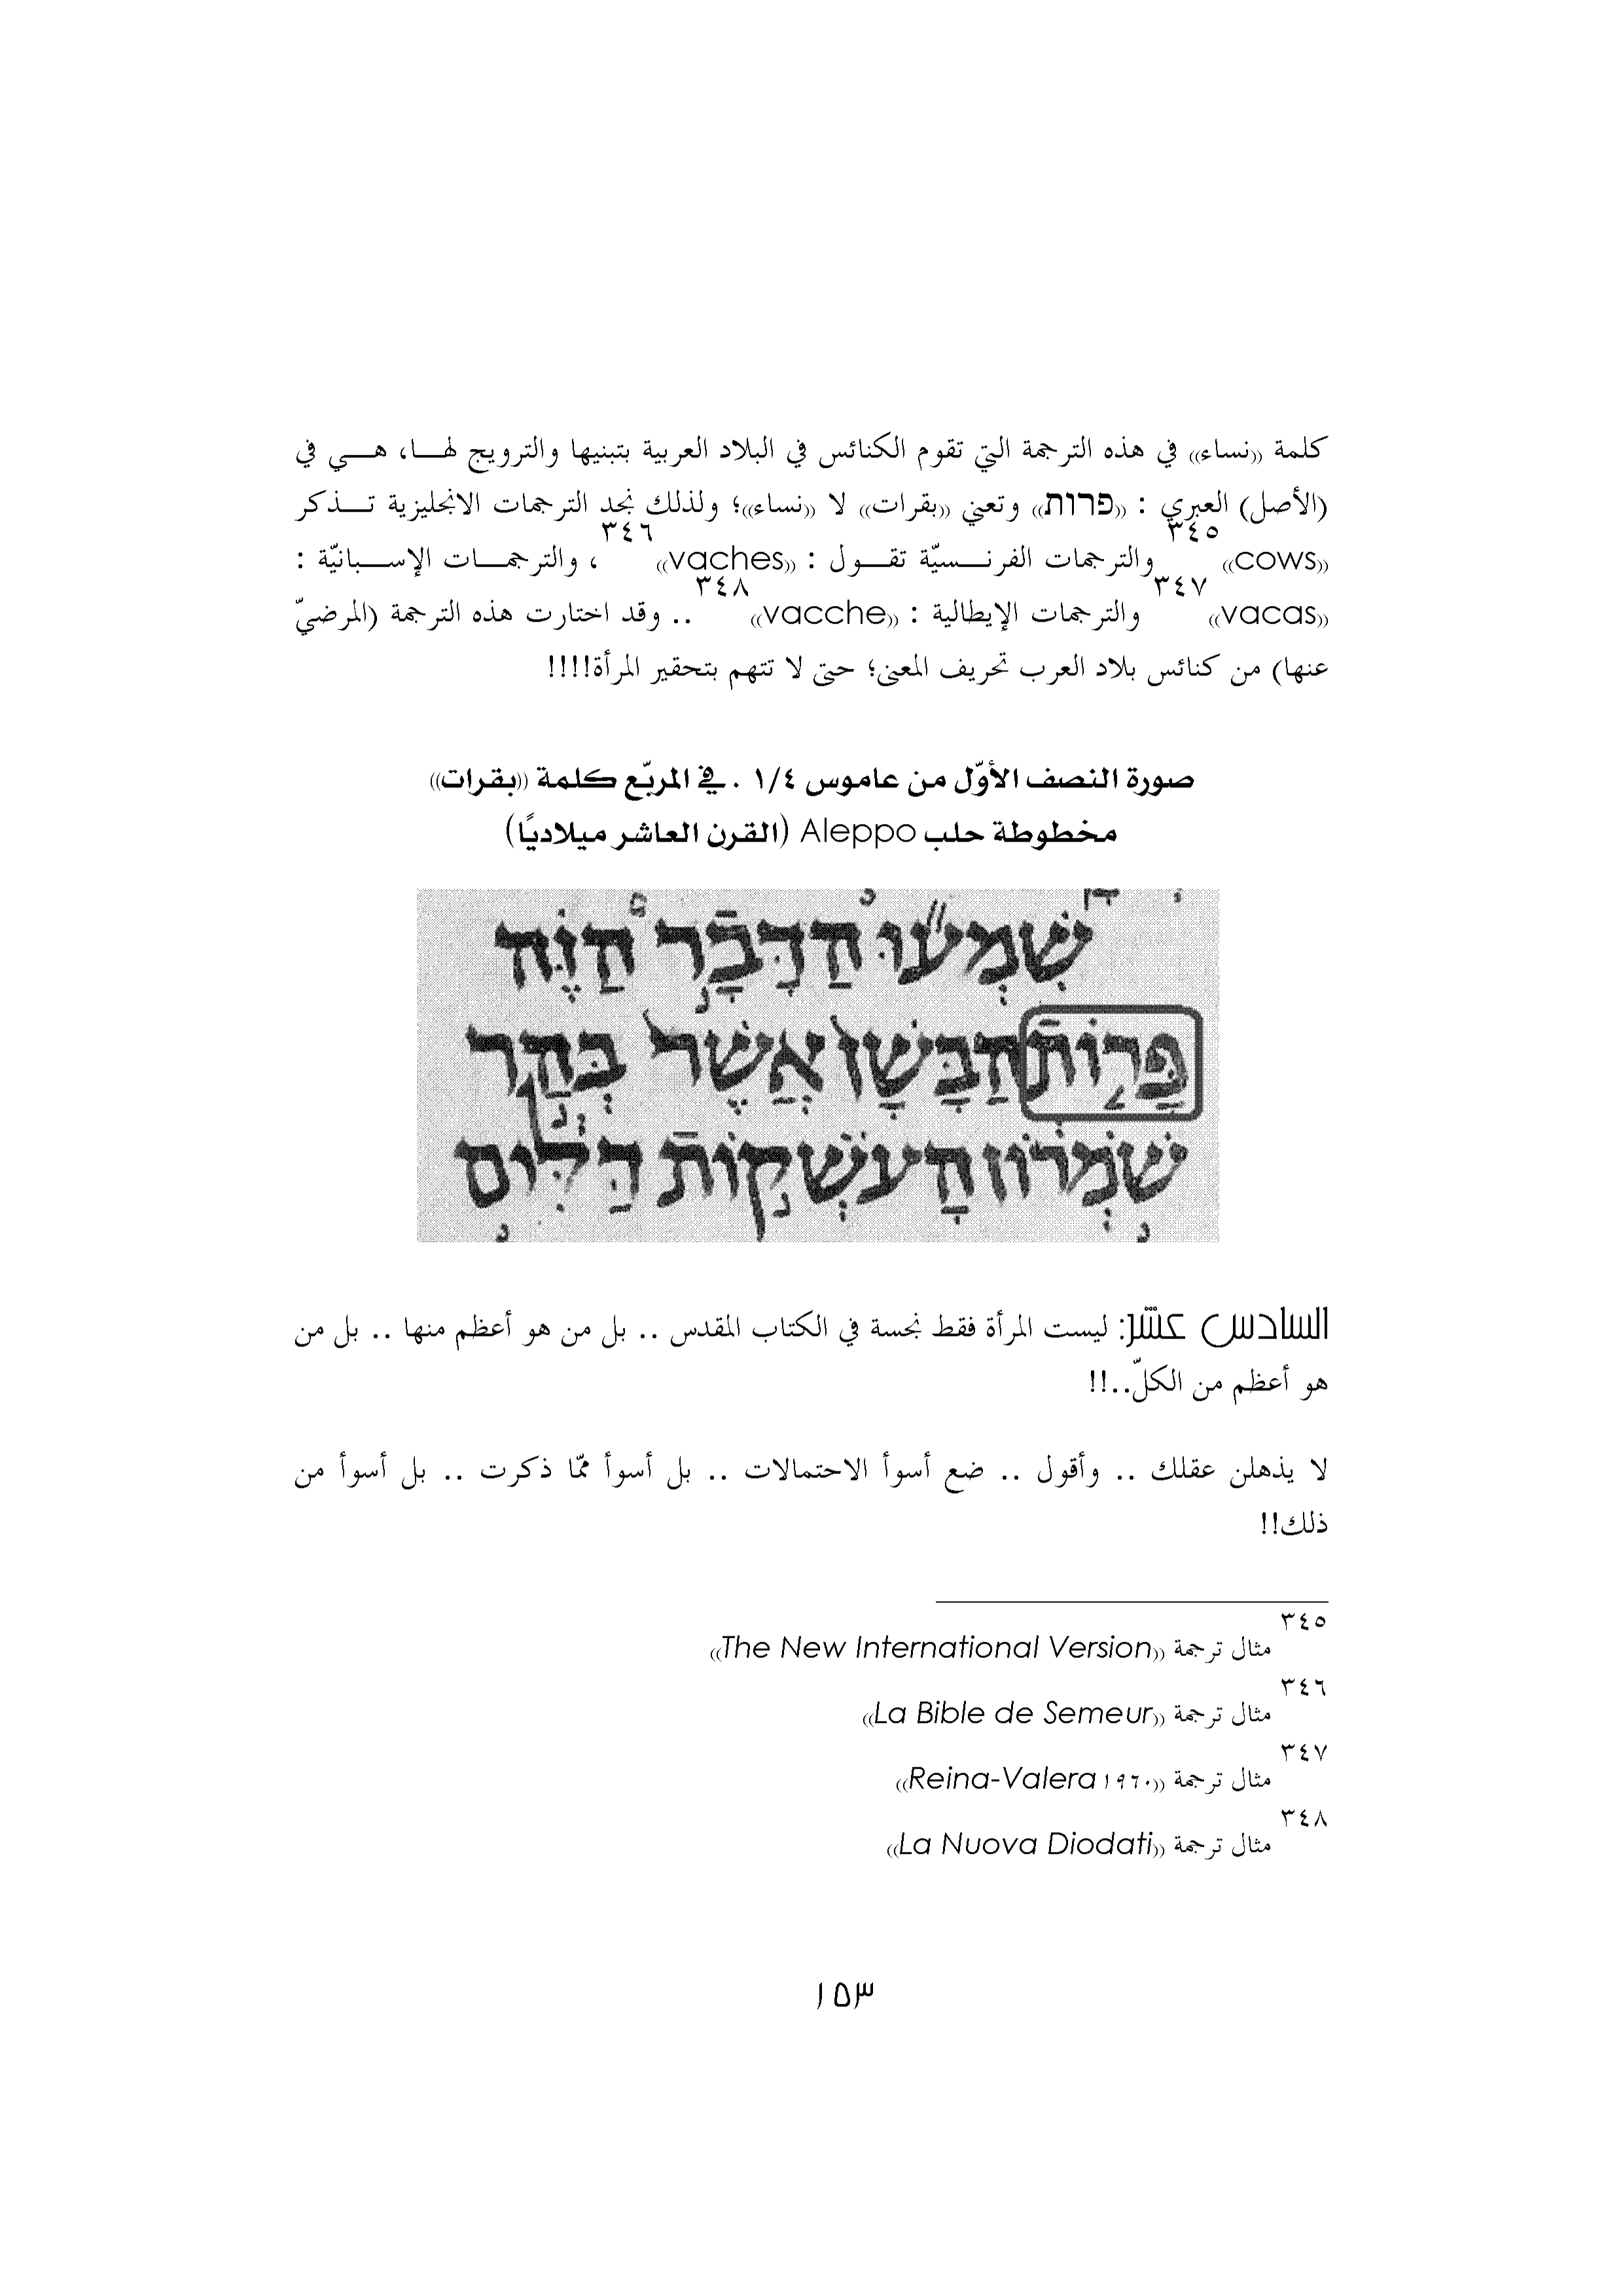 كلمة ((نساء)) في هذه الترجمة التي تقوم الكنائس في البلاد العربية بتبنيها والترويج لهـــا، هـــي في
(الأصل) العبري : ((פרות)) وتعني ((بقرات)) لا ((نساء))؛ ولذلك نجد الترجمات الانجليزية تـــذكر
((cows))٣٤٥ والترجمات الفرنـــسيّة تقـــول : ((vaches))٣٤٦ ، والترجمـــات الإســـبانيّة :
((vacas))٣٤٧ والترجمات الإيطالية : ((vacche))٣٤٨ .. وقد اختارت هذه الترجمة (المرضيّ
عنها) من كنائس بلاد العرب تحريف المعنى؛ حتى لا تتهم بتحقير المرأة!!!!
صورة النصف الأوّل من عاموس ١/٤ . في المربّع كلمة ((بقرات))
مخطوطة حلب Aleppo (القرن العاشر ميلاديًا)
שִׁמְעוּ הַדָּבָר הַזֶּה
פָּרוֹת הַבָּשָׁן אֲשֶׁר בְּהַר
שֹׁמְרוֹן הָעֹשְׁקוֹת דַּלִּים
السادس عشر: ليست المرأة فقط نجسة في الكتاب المقدس .. بل من هو أعظم منها .. بل من
هو أعظم من الكلّ..!!
لا يذهلن عقلك .. وأقول .. ضع أسوأ الاحتمالات .. بل أسوأ ممّا ذكرت .. بل أسوأ من
ذلك!!
٣٤٥ مثال ترجمة ((The New International Version))
٣٤٦ مثال ترجمة ((La Bible de Semeur))
٣٤٧ مثال ترجمة ((Reina-Valera ١٩٦٠))
٣٤٨ مثال ترجمة ((La Nuova Diodati))
١٥٣